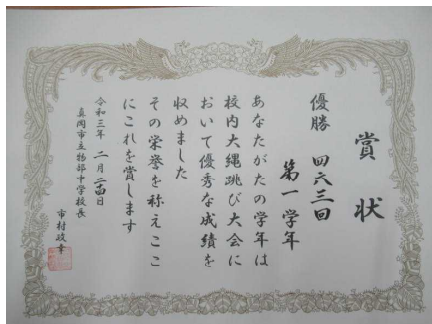 賞状
優勝 四六三回
第一学年
あなたがたの学年は
校内大縄跳び大会に
おいて優秀な成績を
収めました
その栄誉を称えここ
にこれを賞します
令和三年 二月二十四日
真岡市立物部中学校長
市村政幸